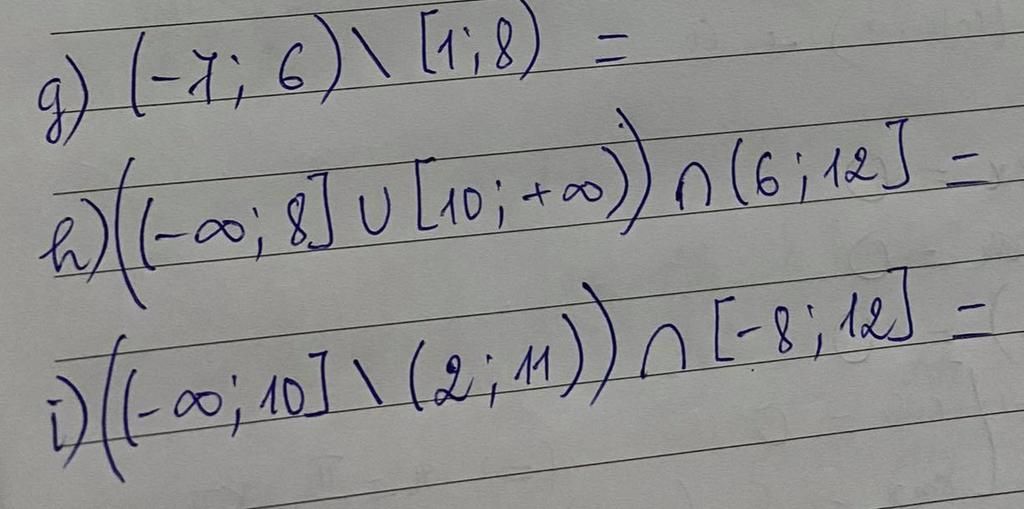 g) (-7; 6) \ [1; 8) =
h) ((-∞; 8] ∪ [10; +∞)) ∩ (6; 12] =
i) ((-∞; 10] \ (2; 11)) ∩ [-8; 12] =